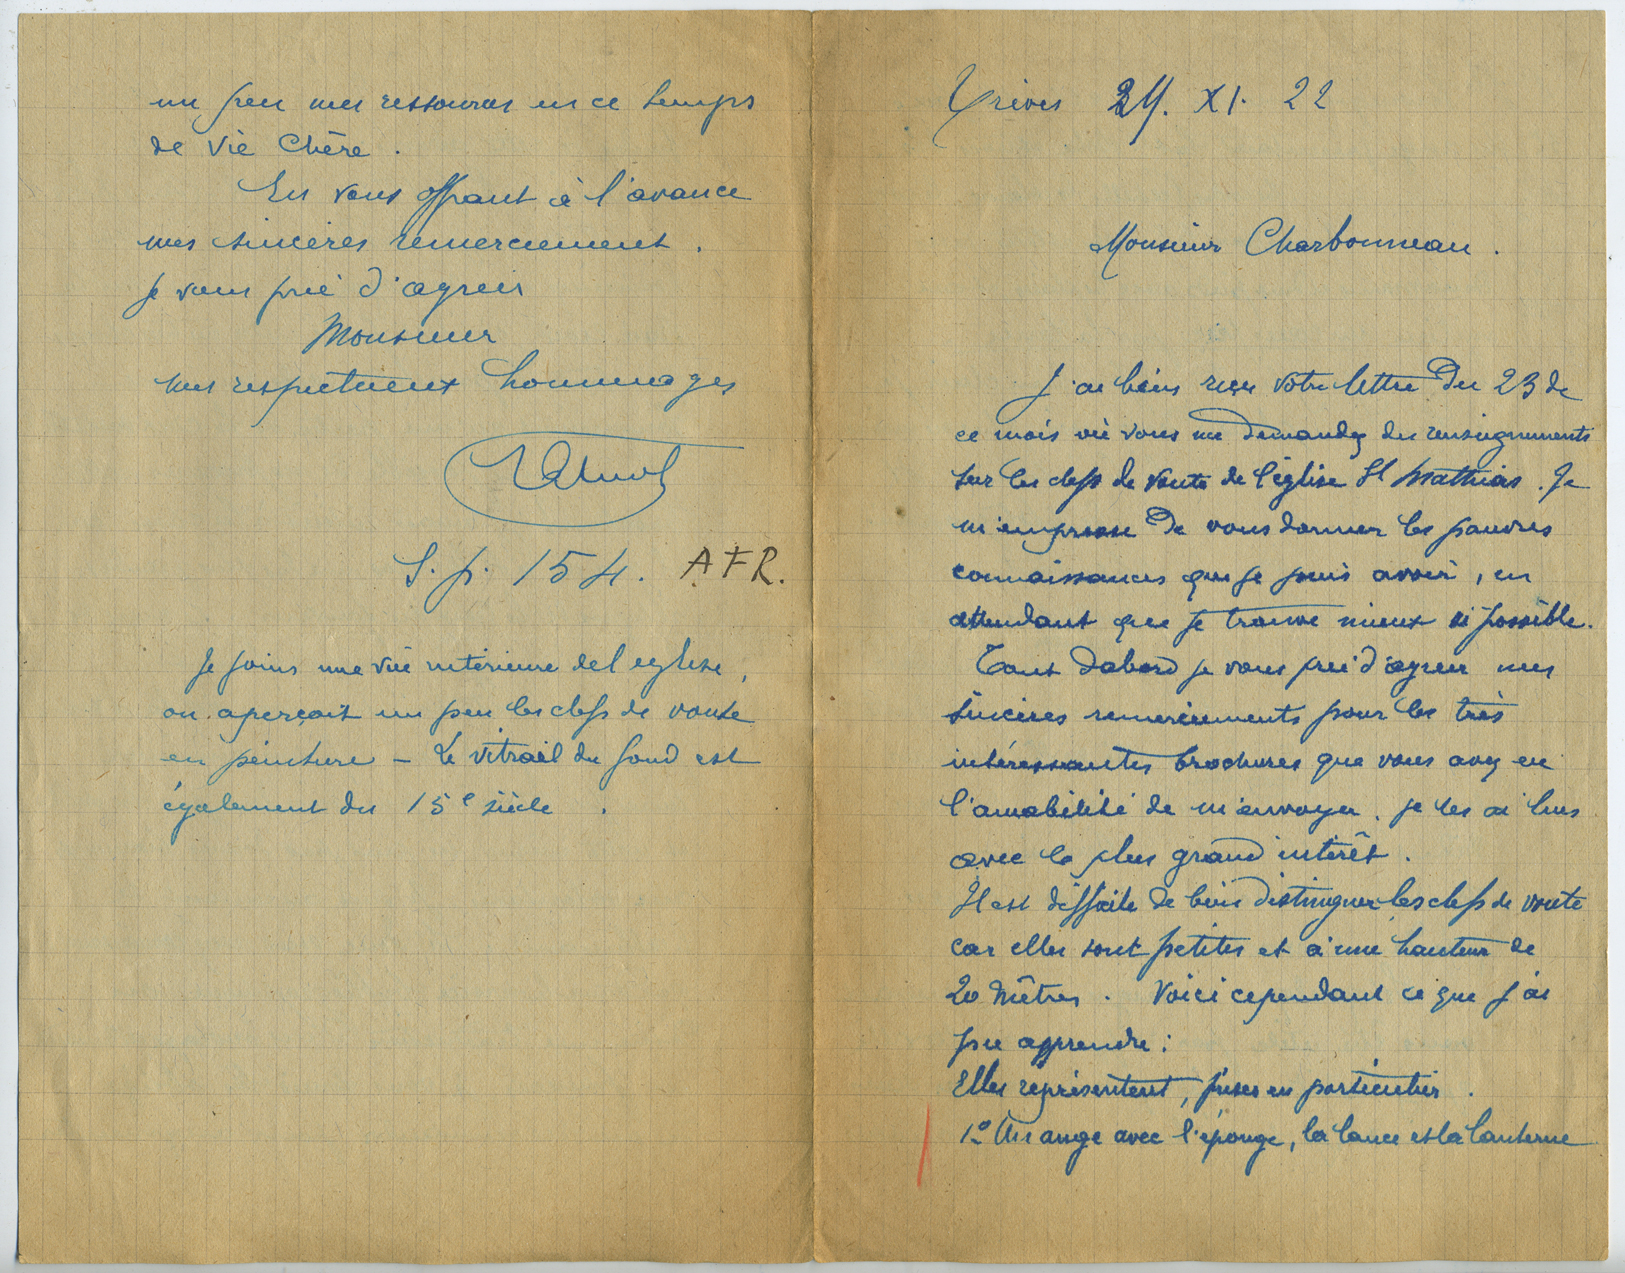 Trèves 24. XI. 22
Monsieur Charbonneau.
J'ai bien reçu votre lettre du 23 de
ce mois où vous me demandez des renseignements
sur les clefs de voute de l'église St Mathias. Je
m'empresse de vous donner les pauvres
connaissances que je puis avoir, en
attendant que je trouve mieux si possible.
Tout dabord je vous prie d'agréer mes
sincères remerciements pour les très
intéressantes brochures que vous avez eu
l'amabilité de m'envoyer. je les ai lues
avec le plus grand intérêt.
Il est difficile de bien distinguer les clefs de voute
car elles sont petites et à une hauteur de
20 mètres. Voici cependant ce que j'ai
pu apprendre:
Elles représentent, prises en particulier.
1º Un ange avec l'éponge, la lance et la lanterne
un peu mes ressources en ce temps
de vie chère.
En vous offrant à l'avance
mes sincères remerciement.
je vous prie d'agréer
Monsieur
mes respectueux hommages
S. p. 154. AFR.
Je joins une vue intérieure de l eglise,
on aperçoit un peu les clefs de voute
en peinture – Le vitrail du fond est
également du 15e siècle.